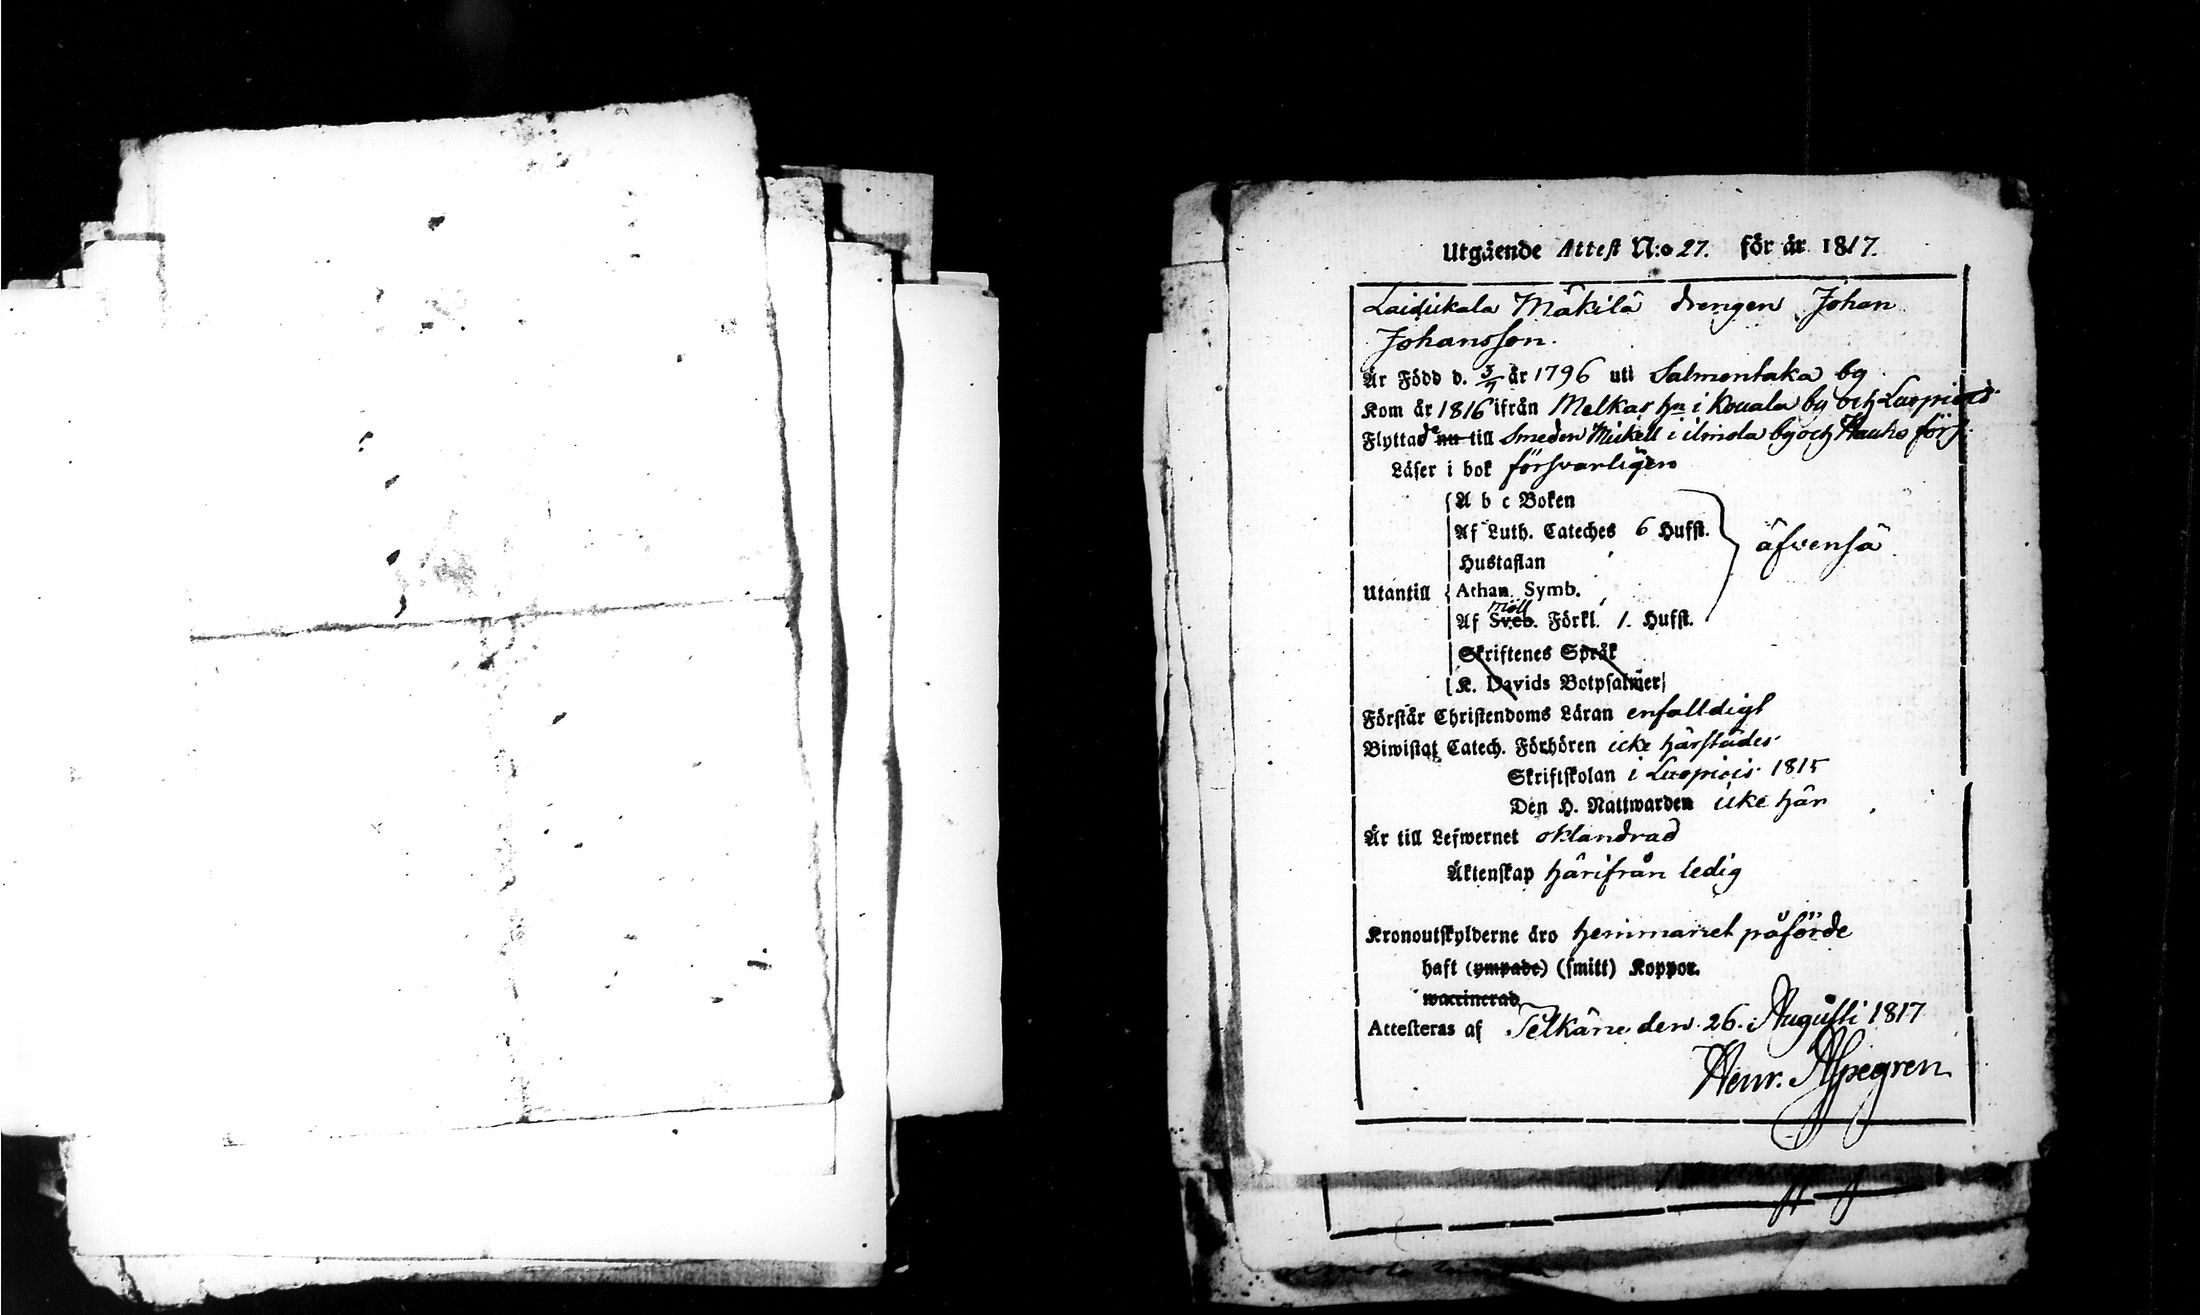 Utgående Attest N:o 27. för år 1817.
Laidikala Mäkilä drengen Johan
Johansson.
Är Född d. 3/7 år 1796 uti Salmentaka by
Kom år 1816 ifrån Melkas hn i Kouala by och Luopiois
Flyttade nu till Smeden Mickell i ilmola by och Hauho förs.
Läser i bok försvarligen
A b c Boken
Af Luth. Cateches 6 Hufst.
äfvenså
Hustaflan
Utantill Athan. Symb.
möll
Af Sveb. Förkl. 1. Hufst.
Skriftenes Språk
K. Davids Botpsalmer
Förstår Christendoms Läran enfalldigt
Biwistat Catech. Förhören icke härstädes
Skriftskolan i Luopiois 1815
Den H. Nattwarden icke här
Är till Lefwernet oklandrad
Äktenskap härifrån ledig
Kronoutskylderne äro hemmanet påförde
haft (ympade) (smitt) Koppor.
waccinerad
Attesteras af Pelkäne den 26. Augusti 1817
Henr. Aspegren